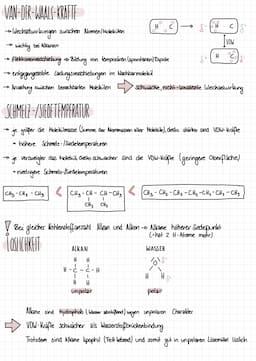 VAN-DER-WAALS-KRÄFTE
→ Wechselwirkungen zwischen Atomen/Molekülen
→ wichtig bei Alkanen
→ Elektronenverschiebung → Bildung von temporären/spontanen Dipole
→ entgegengesetzte Ladungsverschiebungen im Nachbarmolekül
→ Anziehung zwischen benachbarten Molekülen ⇒ schwache, nicht-kovalente Wechselwirkung
H C → H C
VDW
H C
SCHMELZ-/SIEDETEMPERATUR
→ je größer die Molekülmasse (Summe der Atommassen aller Moleküle), desto stärker sind VDW-Kräfte
→ höhere Schmelz-/Siedetemperaturen
→ je verzweigter das Molekül, desto schwächer sind die VDW-Kräfte (geringere Oberfläche)
→ niedrigere Schmelz-/Siedetemperaturen
CH₃-CH₂-CH₃ < CH₃-CH-CH-CH₃ < CH₃-CH₂-CH₂-CH₂-CH₂-CH₃
CH₃ CH₃
! Bei gleicher Kohlenstoffanzahl Alkan und Alken → Alkane höherer Siedepunkt
(→ hat 2 H-Atome mehr)
LÖSLICHKEIT
ALKAN WASSER
H H
H-C-C-H
H H
O
H H
unpolar polar
Alkane sind hydrophob (Wasser abstoßend) wegen unpolaren Charakter
⇒ VDW-Kräfte schwächer als Wasserstoffbrückenbindung
Trotzdem sind Alkane lipophil (Fett liebend) und somit gut in unpolaren Lösemittel löslich